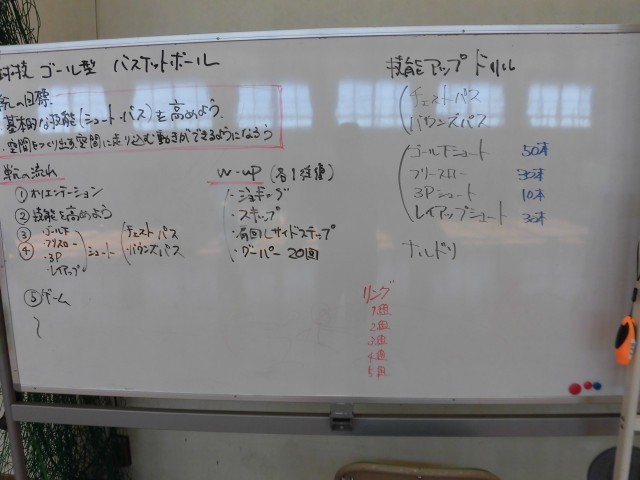 球技 ゴール型 バスケットボール
単元の目標
基本的な技能(シュート・パス)を高めよう.
・空間をつくり出る空間に走り込む動きができるようになろう
単元の流れ
①オリエンテーション
②技能を高めよう
③・ゴール下
④・フリースロー シュート (チェストパス
・3P ・バウンズパス
・レイアップ
⑤ゲーム
W-up (各1往復)
・ジョギング
・スキップ
・肩回しサイドステップ
・グーパー 20回
技能アップドリル
チェストパス
バウンズパス
ゴール下シュート 50本
フリースロー 30本
3Pシュート 10本
レイアップシュート 30本
ナルドリ
リング
1班
2班
3班
4班
5班